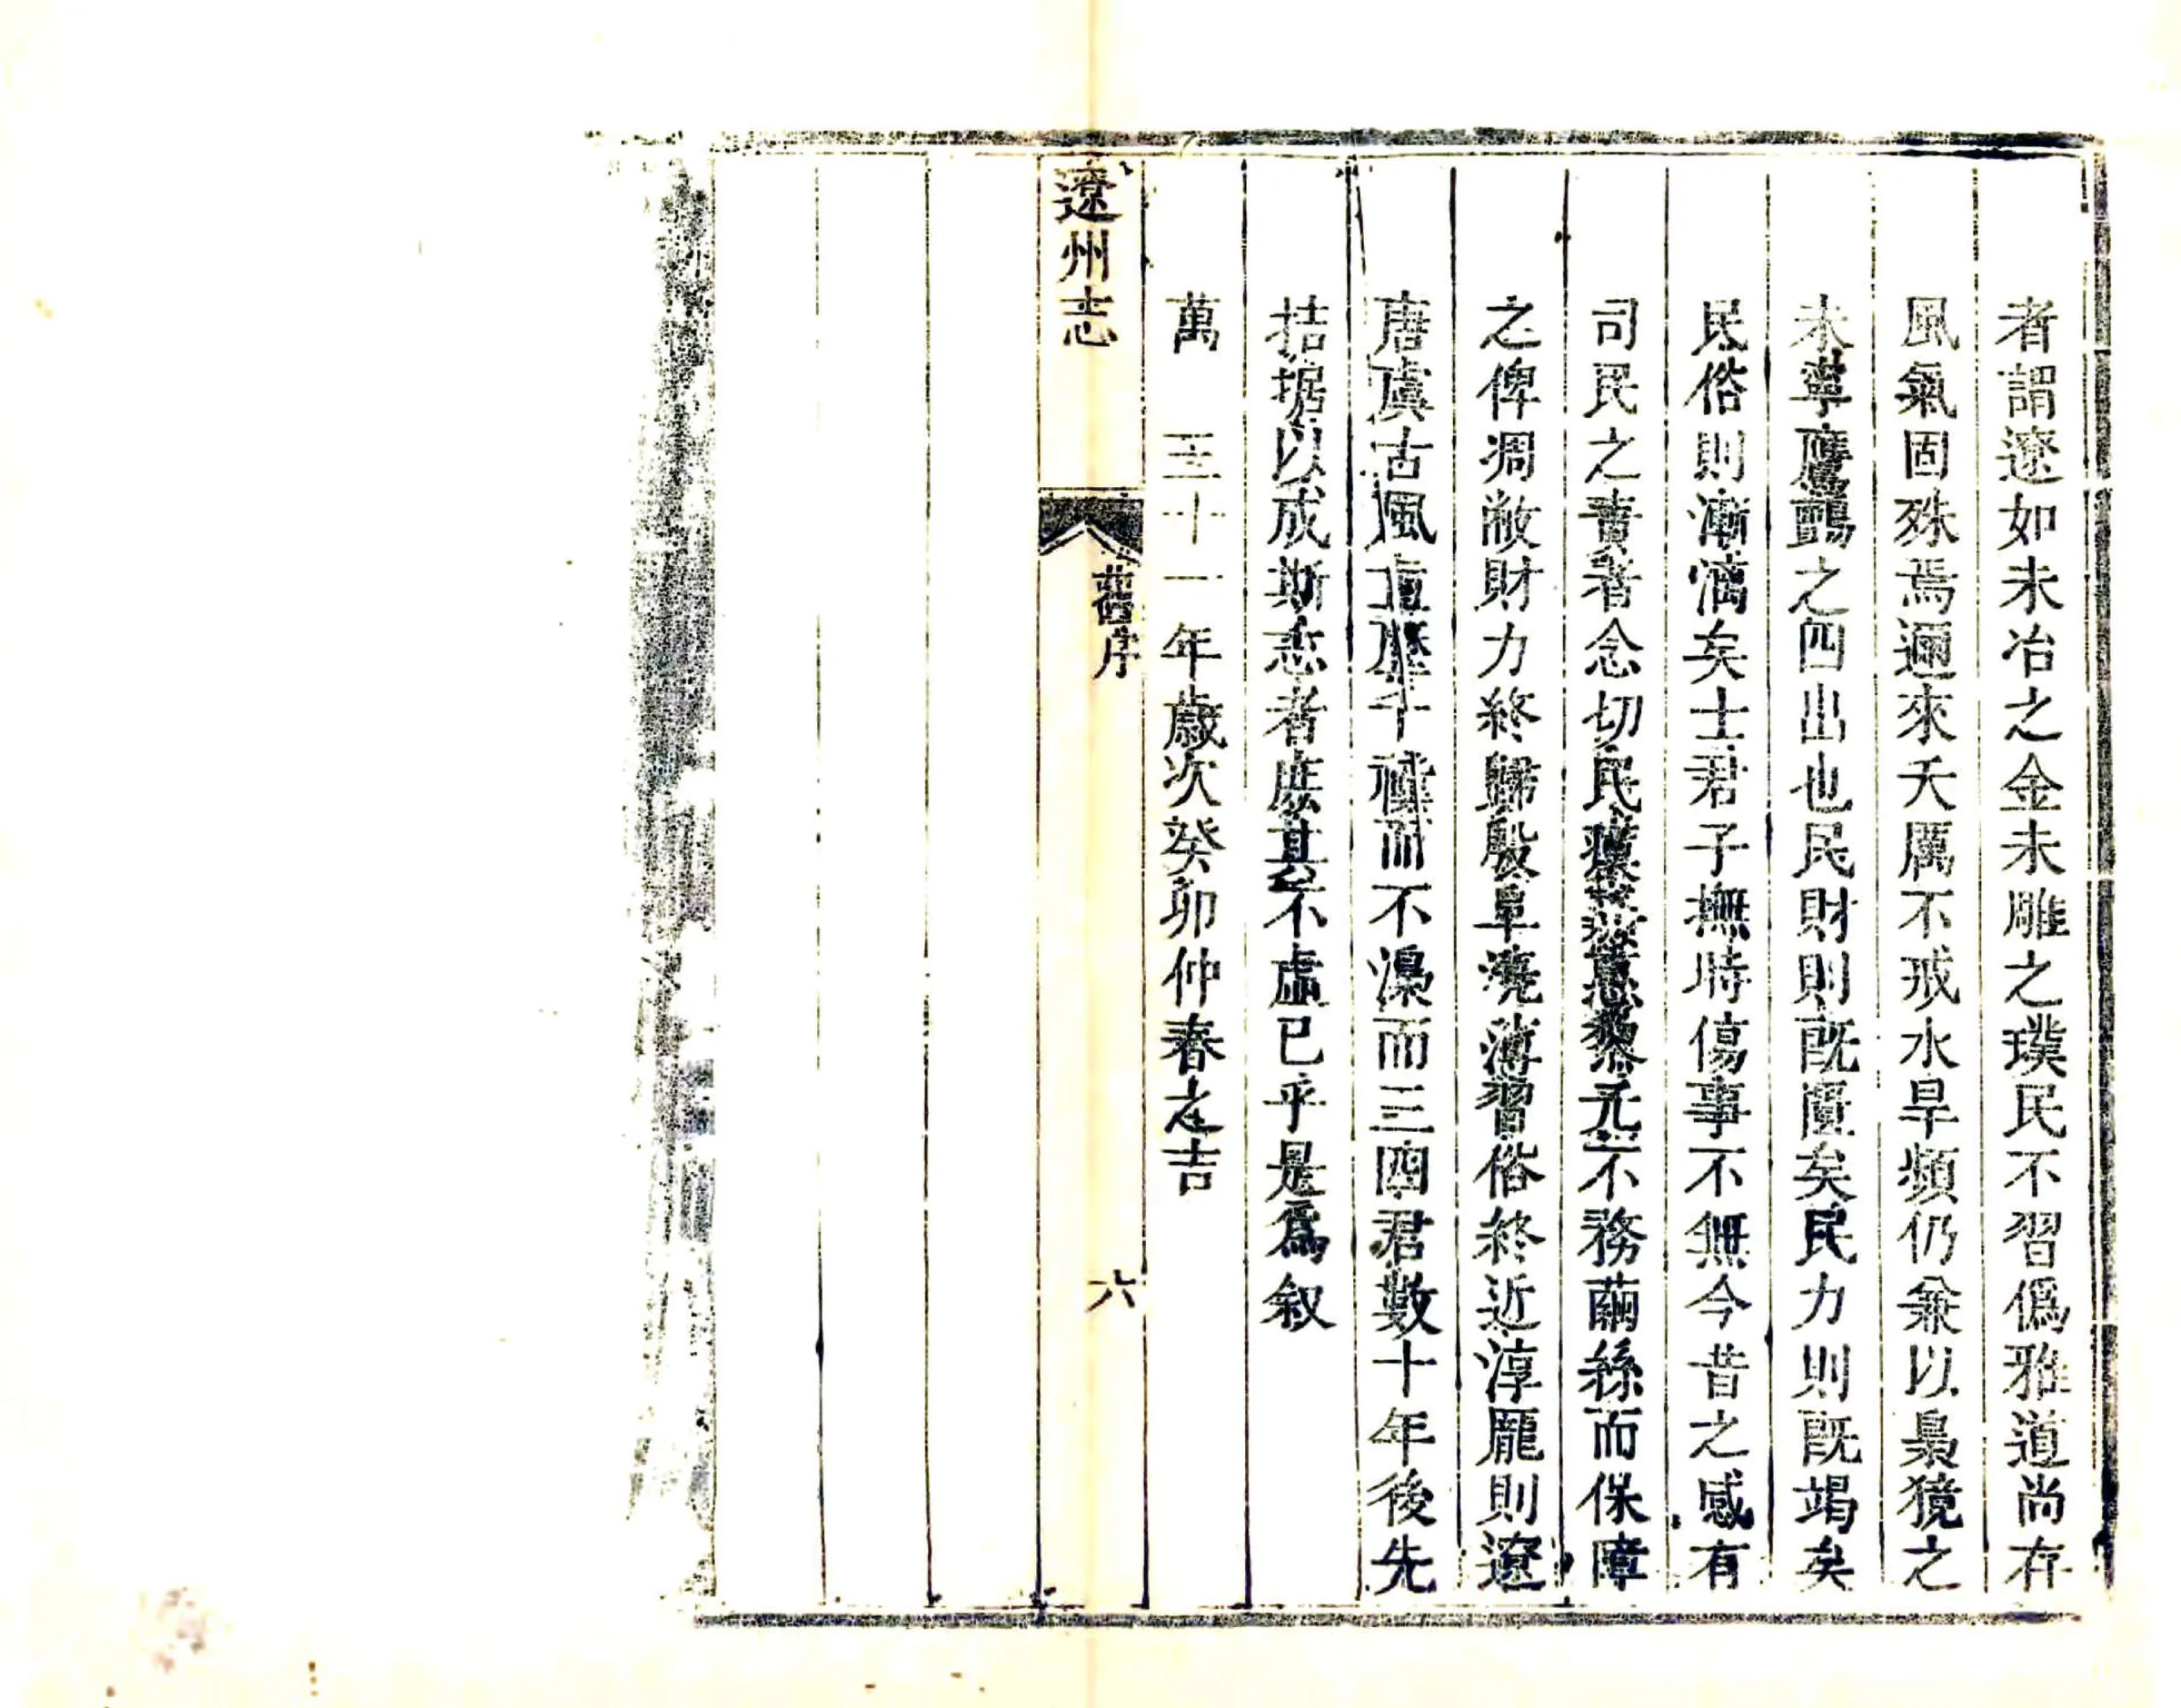 者謂遼如未冶之金未雕之璞民不習僞雅道尚存
風氣固殊焉邇來夭厲不戒水旱頻仍兼以梟獍之
未寧鷹鸇之四出也民財則既匱矣民力則既竭矣
民俗則漸漓矣士君子撫時傷事不無今昔之感有
司民之責者念切民瘼慈黎元不務繭絲而保障
之俾凋敝財力終歸殷阜澆薄習俗終近淳龐則遼
唐虞古風直歷千禩而不澡而三四君數十年後先
拮据以成斯志者庶其不虛已乎是爲叙
萬 三十一年歲次癸卯仲春之吉
遼州志
舊序
六